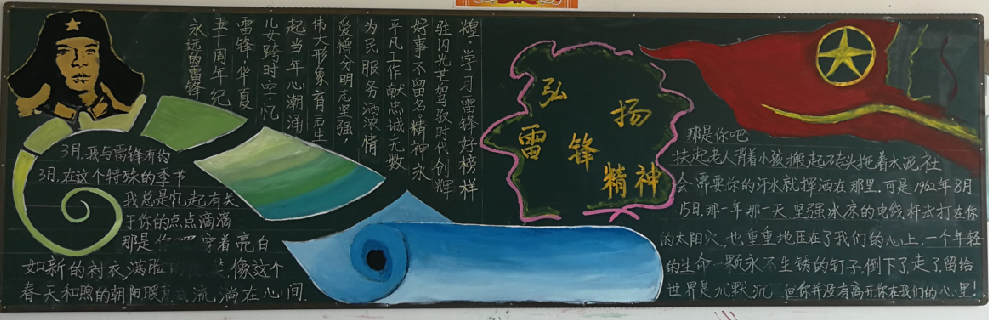 永远的雷锋
五十二周年纪
雷锋,华夏
儿女跨时空忆
起当年心潮涌
伟大形象育后生
爱憎分明志坚强,
为民服务浓浓情
平凡工作献忠诚无数
好事不留名精神永
驻闪光芒如驭时代创辉
煌,学习雷锋好榜样
3月,我与雷锋有约
3月,在这个特殊的季节
我总是忆起有关
于你的点点滴滴
那是你 穿着亮白
如新的衬衣,满脸 像这个
春天和煦的朝阳暖 流淌在心间.
弘扬
雷锋
精神
那是你吧
扶起老人背着小孩搬起石头拖着水泥,社
会需要你的汗水就挥洒在那里.可是1962年8月
15日.那一年那一天坚强冰凉的电线杆击打在你
的太阳穴,也重重地压在了我们的心上,一个年轻
的生命一颗永不生锈的钉子倒下了.走了.留给
世界是沉默沉 但你并没有离开你在我们的心里!